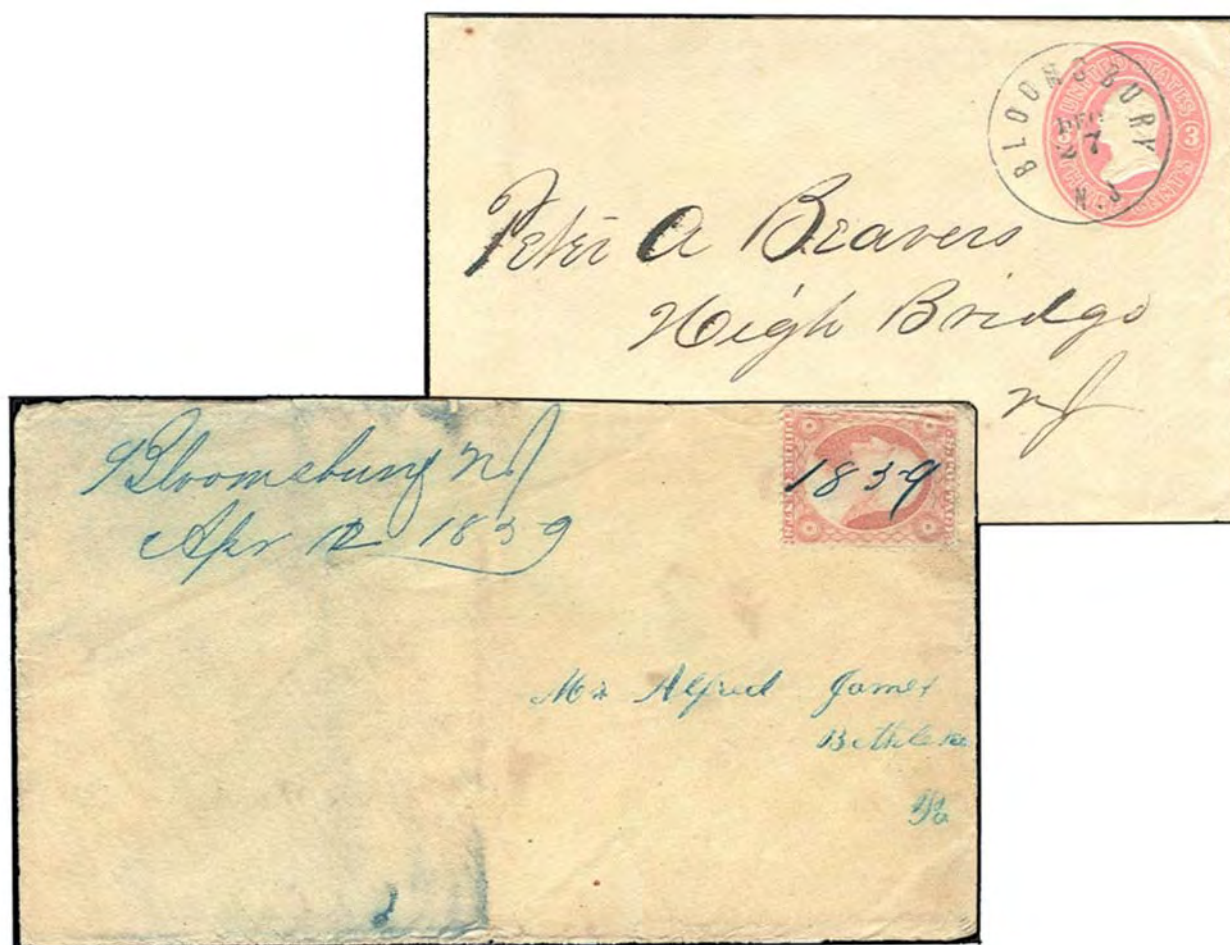 BLOOMSBURY
DEC
27
N.J
UNITED STATES
3 3
THREE CENTS
Peter A Beavers
High Bridge
NJ
Bloomsbury NJ
Apr 12 1839
1839
Mr Alfred James
Pa